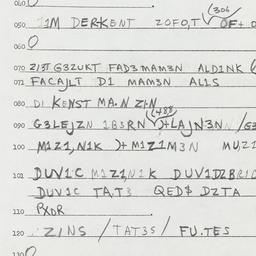 040
(306)
050 IM DERKENT ZOFO,T OF+ O
060
070 213T G3ZUKT FAD3MAM3N ALDINK
071 FACAJLT D1 MAM3N AL1S
080 D1 KENST MA.N Z1.N
(488)
090 G3LEJZN 1B3RN )+LAJN3N /G3
100 M1Z1,N1K )+ M1Z1M3N MUZ1
101 DUV1C M1Z1,N1K DUV1D2BR1D
DUV1C TA,T3 QED$ DZTA
110 RXOR
120 Z1NS / TAT3S / FU.TES
130